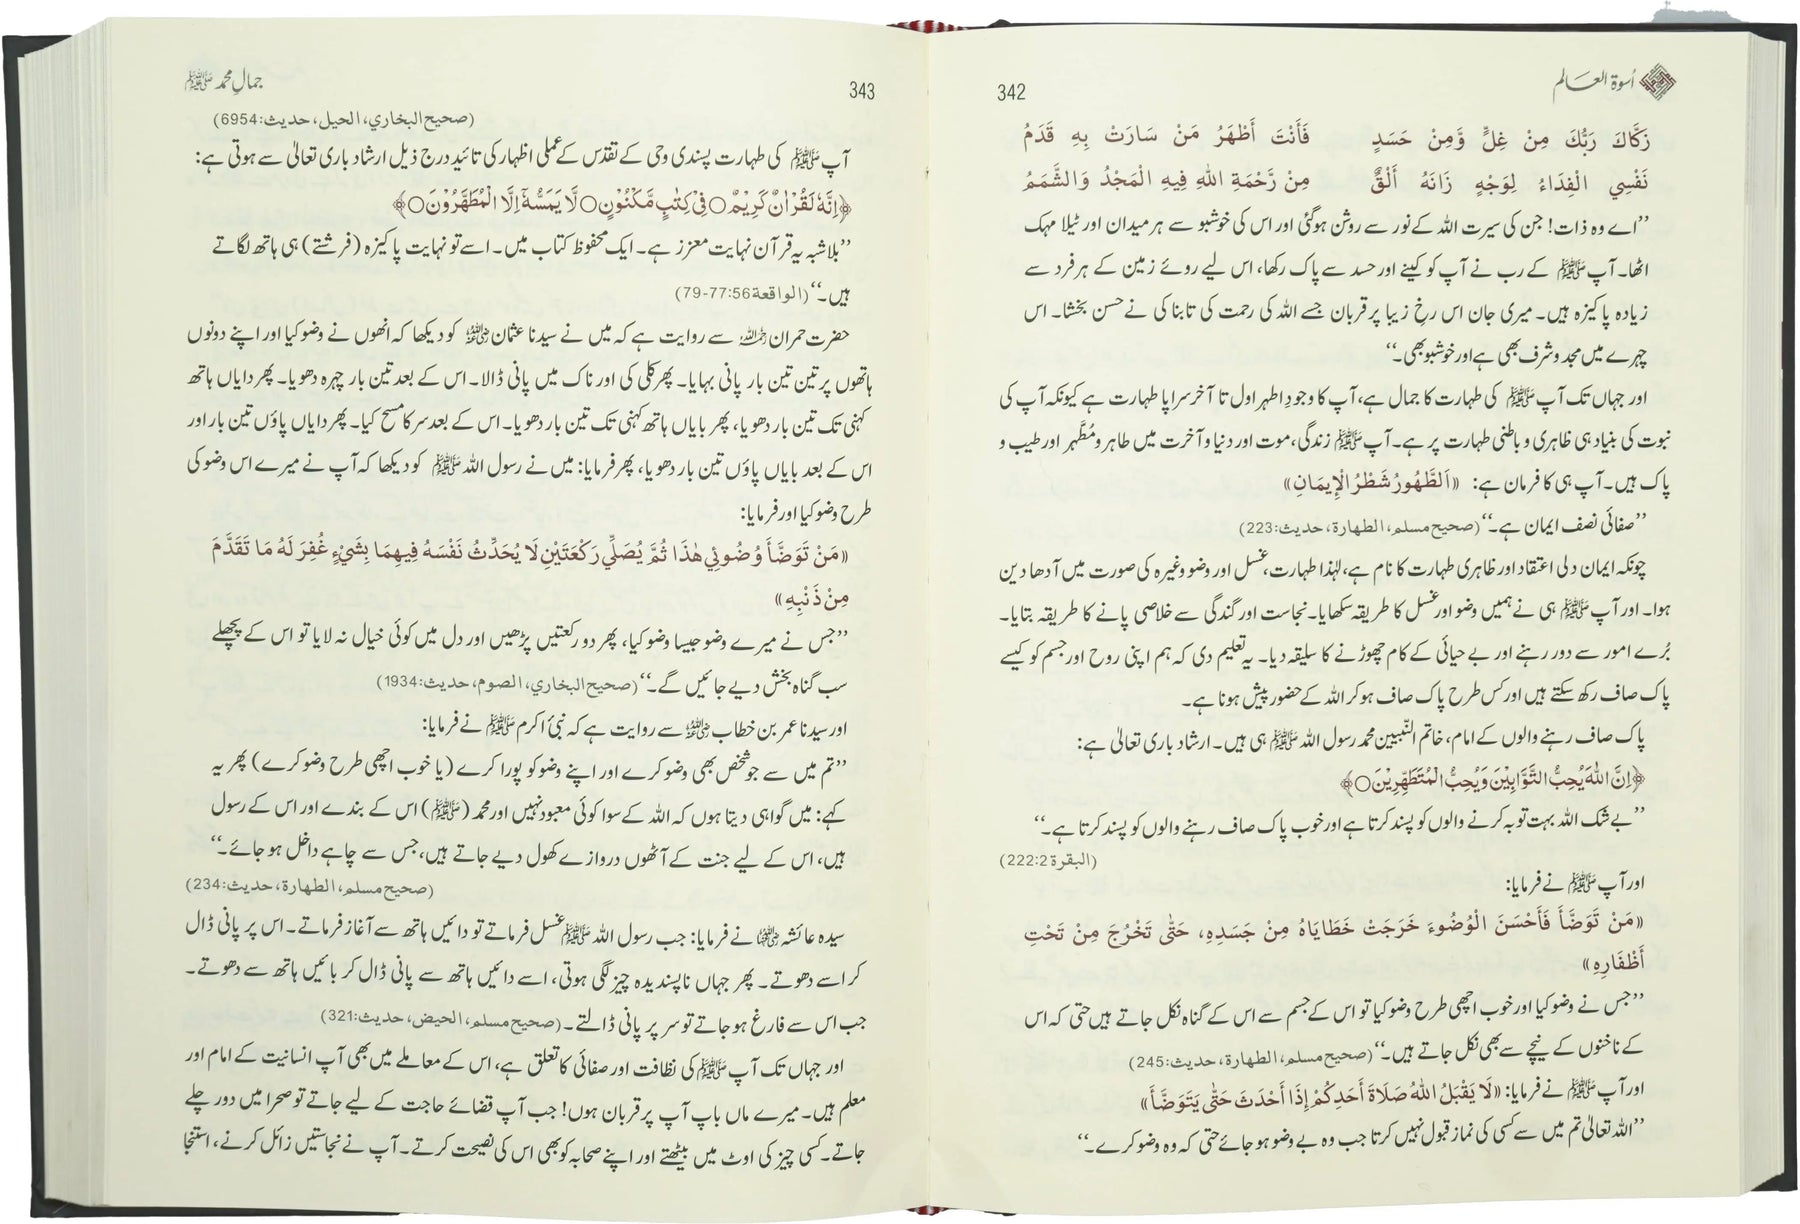 اُسوۃ العالم
342
زَكَّاكَ رَبُّكَ مِنْ غِلٍّ وَّمِنْ حَسَدٍ فَأَنْتَ أَطْهَرُ مَنْ سَارَتْ بِهِ قَدَمُ
نَفْسِي الْفِدَاءُ لِوَجْهٍ زَانَهُ أَلَقٌ مِنْ رَّحْمَةِ اللهِ فِيهِ الْمَجْدُ وَالشَّمَمُ
’’اے وہ ذات! جن کی سیرت اللہ کے نور سے روشن ہوگئی اور اس کی خوشبو سے ہر میدان اور ٹیلا مہک
اٹھا۔ آپ ﷺ کے رب نے آپ کو کینے اور حسد سے پاک رکھا، اس لیے روئے زمین کے ہر فرد سے
زیادہ پاکیزہ ہیں۔ میری جان اس رخِ زیبا پر قربان جسے اللہ کی رحمت کی تابناکی نے حسن بخشا۔ اس
چہرے میں مجد و شرف بھی ہے اور خوشبو بھی۔‘‘
اور جہاں تک آپ ﷺ کی طہارت کا جمال ہے، آپ کا وجودِ اطہر اول تا آخر سراپا طہارت ہے کیونکہ آپ کی
نبوت کی بنیاد ہی ظاہری و باطنی طہارت پر ہے۔ آپ ﷺ زندگی، موت اور دنیا و آخرت میں طاہر و مُطَّہر اور طیب و
پاک ہیں۔ آپ ہی کا فرمان ہے: «اَلطَّهُورُ شَطْرُ الْإِيمَانِ»
’’صفائی نصف ایمان ہے۔‘‘ (صحیح مسلم، الطهارة، حدیث: 223)
چونکہ ایمان دلی اعتقاد اور ظاہری طہارت کا نام ہے، لہٰذا طہارت، غسل اور وضو وغیرہ کی صورت میں آدھا دین
ہوا۔ اور آپ ﷺ ہی نے ہمیں وضو اور غسل کا طریقہ سکھایا۔ نجاست اور گندگی سے خلاصی پانے کا طریقہ بتایا۔
بُرے امور سے دور رہنے اور بے حیائی کے کام چھوڑنے کا سلیقہ دیا۔ یہ تعلیم دی کہ ہم اپنی روح اور جسم کو کیسے
پاک صاف رکھ سکتے ہیں اور کس طرح پاک صاف ہو کر اللہ کے حضور پیش ہونا ہے۔
پاک صاف رہنے والوں کے امام، خاتم النّبیین محمد رسول اللہ ﷺ ہی ہیں۔ ارشاد باری تعالیٰ ہے:
﴿اِنَّ اللّٰهَ يُحِبُّ التَّوَّابِيْنَ وَيُحِبُّ الْمُتَطَهِّرِيْنَ○﴾
’’بے شک اللہ بہت توبہ کرنے والوں کو پسند کرتا ہے اور خوب پاک صاف رہنے والوں کو پسند کرتا ہے۔‘‘
(البقرة 222:2)
اور آپ ﷺ نے فرمایا:
«مَنْ تَوَضَّأَ فَأَحْسَنَ الْوُضُوءَ خَرَجَتْ خَطَايَاهُ مِنْ جَسَدِهِ، حَتّٰى تَخْرُجَ مِنْ تَحْتِ
أَظْفَارِهِ»
’’جس نے وضو کیا اور خوب اچھی طرح وضو کیا تو اس کے جسم سے اس کے گناہ نکل جاتے ہیں حتی کہ اس
کے ناخنوں کے نیچے سے بھی نکل جاتے ہیں۔‘‘ (صحیح مسلم، الطهارة، حدیث: 245)
اور آپ ﷺ نے فرمایا: «لَا يَقْبَلُ اللهُ صَلَاةَ أَحَدِكُمْ إِذَا أَحْدَثَ حَتّٰى يَتَوَضَّأَ»
’’اللہ تعالیٰ تم میں سے کسی کی نماز قبول نہیں کرتا جب وہ بے وضو ہو جائے حتی کہ وہ وضو کرے۔‘‘
343
جمالِ محمد ﷺ
(صحیح البخاري، الحیل، حدیث: 6954)
آپ ﷺ کی طہارت پسندی وحی کے تقدس کے عملی اظہار کی تائید درج ذیل ارشاد باری تعالیٰ سے ہوتی ہے:
﴿اِنَّهٗ لَقُرْاٰنٌ كَرِيْمٌ○ فِيْ كِتٰبٍ مَّكْنُوْنٍ○ لَّا يَمَسُّهٗٓ اِلَّا الْمُطَهَّرُوْنَ○﴾
’’بلاشبہ یہ قرآن نہایت معزز ہے۔ ایک محفوظ کتاب میں۔ اسے تو نہایت پاکیزہ (فرشتے) ہی ہاتھ لگاتے
ہیں۔‘‘ (الواقعة 77:56-79)
حضرت حمران رحمہ اللہ سے روایت ہے کہ میں نے سیدنا عثمان رضی اللہ عنہ کو دیکھا کہ انھوں نے وضو کیا اور اپنے دونوں
ہاتھوں پر تین تین بار پانی بہایا۔ پھر کلی کی اور ناک میں پانی ڈالا۔ اس کے بعد تین بار چہرہ دھویا۔ پھر دایاں ہاتھ
کہنی تک تین بار دھویا، پھر بایاں ہاتھ کہنی تک تین بار دھویا۔ اس کے بعد سر کا مسح کیا۔ پھر دایاں پاؤں تین بار اور
اس کے بعد بایاں پاؤں تین بار دھویا، پھر فرمایا: میں نے رسول اللہ ﷺ کو دیکھا کہ آپ نے میرے اس وضو کی
طرح وضو کیا اور فرمایا:
«مَنْ تَوَضَّأَ وُضُوئِي هٰذَا ثُمَّ يُصَلِّي رَكْعَتَيْنِ لَا يُحَدِّثُ نَفْسَهُ فِيهِمَا بِشَيْءٍ غُفِرَ لَهُ مَا تَقَدَّمَ
مِنْ ذَنْبِهِ»
’’جس نے میرے وضو جیسا وضو کیا، پھر دو رکعتیں پڑھیں اور دل میں کوئی خیال نہ لایا تو اس کے پچھلے
سب گناہ بخش دیے جائیں گے۔‘‘ (صحیح البخاري، الصوم، حدیث: 1934)
اور سیدنا عمر بن خطاب رضی اللہ عنہ سے روایت ہے کہ نبیٔ اکرم ﷺ نے فرمایا:
’’تم میں سے جو شخص بھی وضو کرے اور اپنے وضو کو پورا کرے (یا خوب اچھی طرح وضو کرے) پھر یہ
کہے: میں گواہی دیتا ہوں کہ اللہ کے سوا کوئی معبود نہیں اور محمد (ﷺ) اس کے بندے اور اس کے رسول
ہیں، اس کے لیے جنت کے آٹھوں دروازے کھول دیے جاتے ہیں، جس سے چاہے داخل ہو جائے۔‘‘
(صحیح مسلم، الطهارة، حدیث: 234)
سیدہ عائشہ رضی اللہ عنہا نے فرمایا: جب رسول اللہ ﷺ غسل فرماتے تو دائیں ہاتھ سے آغاز فرماتے۔ اس پر پانی ڈال
کر اسے دھوتے۔ پھر جہاں ناپسندیدہ چیز لگی ہوتی، اسے دائیں ہاتھ سے پانی ڈال کر بائیں ہاتھ سے دھوتے۔
جب اس سے فارغ ہو جاتے تو سر پر پانی ڈالتے۔ (صحیح مسلم، الحیض، حدیث: 321)
اور جہاں تک آپ ﷺ کی نظافت اور صفائی کا تعلق ہے، اس کے معاملے میں بھی آپ انسانیت کے امام اور
معلم ہیں۔ میرے ماں باپ آپ پر قربان ہوں! جب آپ قضائے حاجت کے لیے جاتے تو صحرا میں دور چلے
جاتے۔ کسی چیز کی اوٹ میں بیٹھتے اور اپنے صحابہ کو بھی اس کی نصیحت کرتے۔ آپ نے نجاستیں زائل کرنے، استنجا